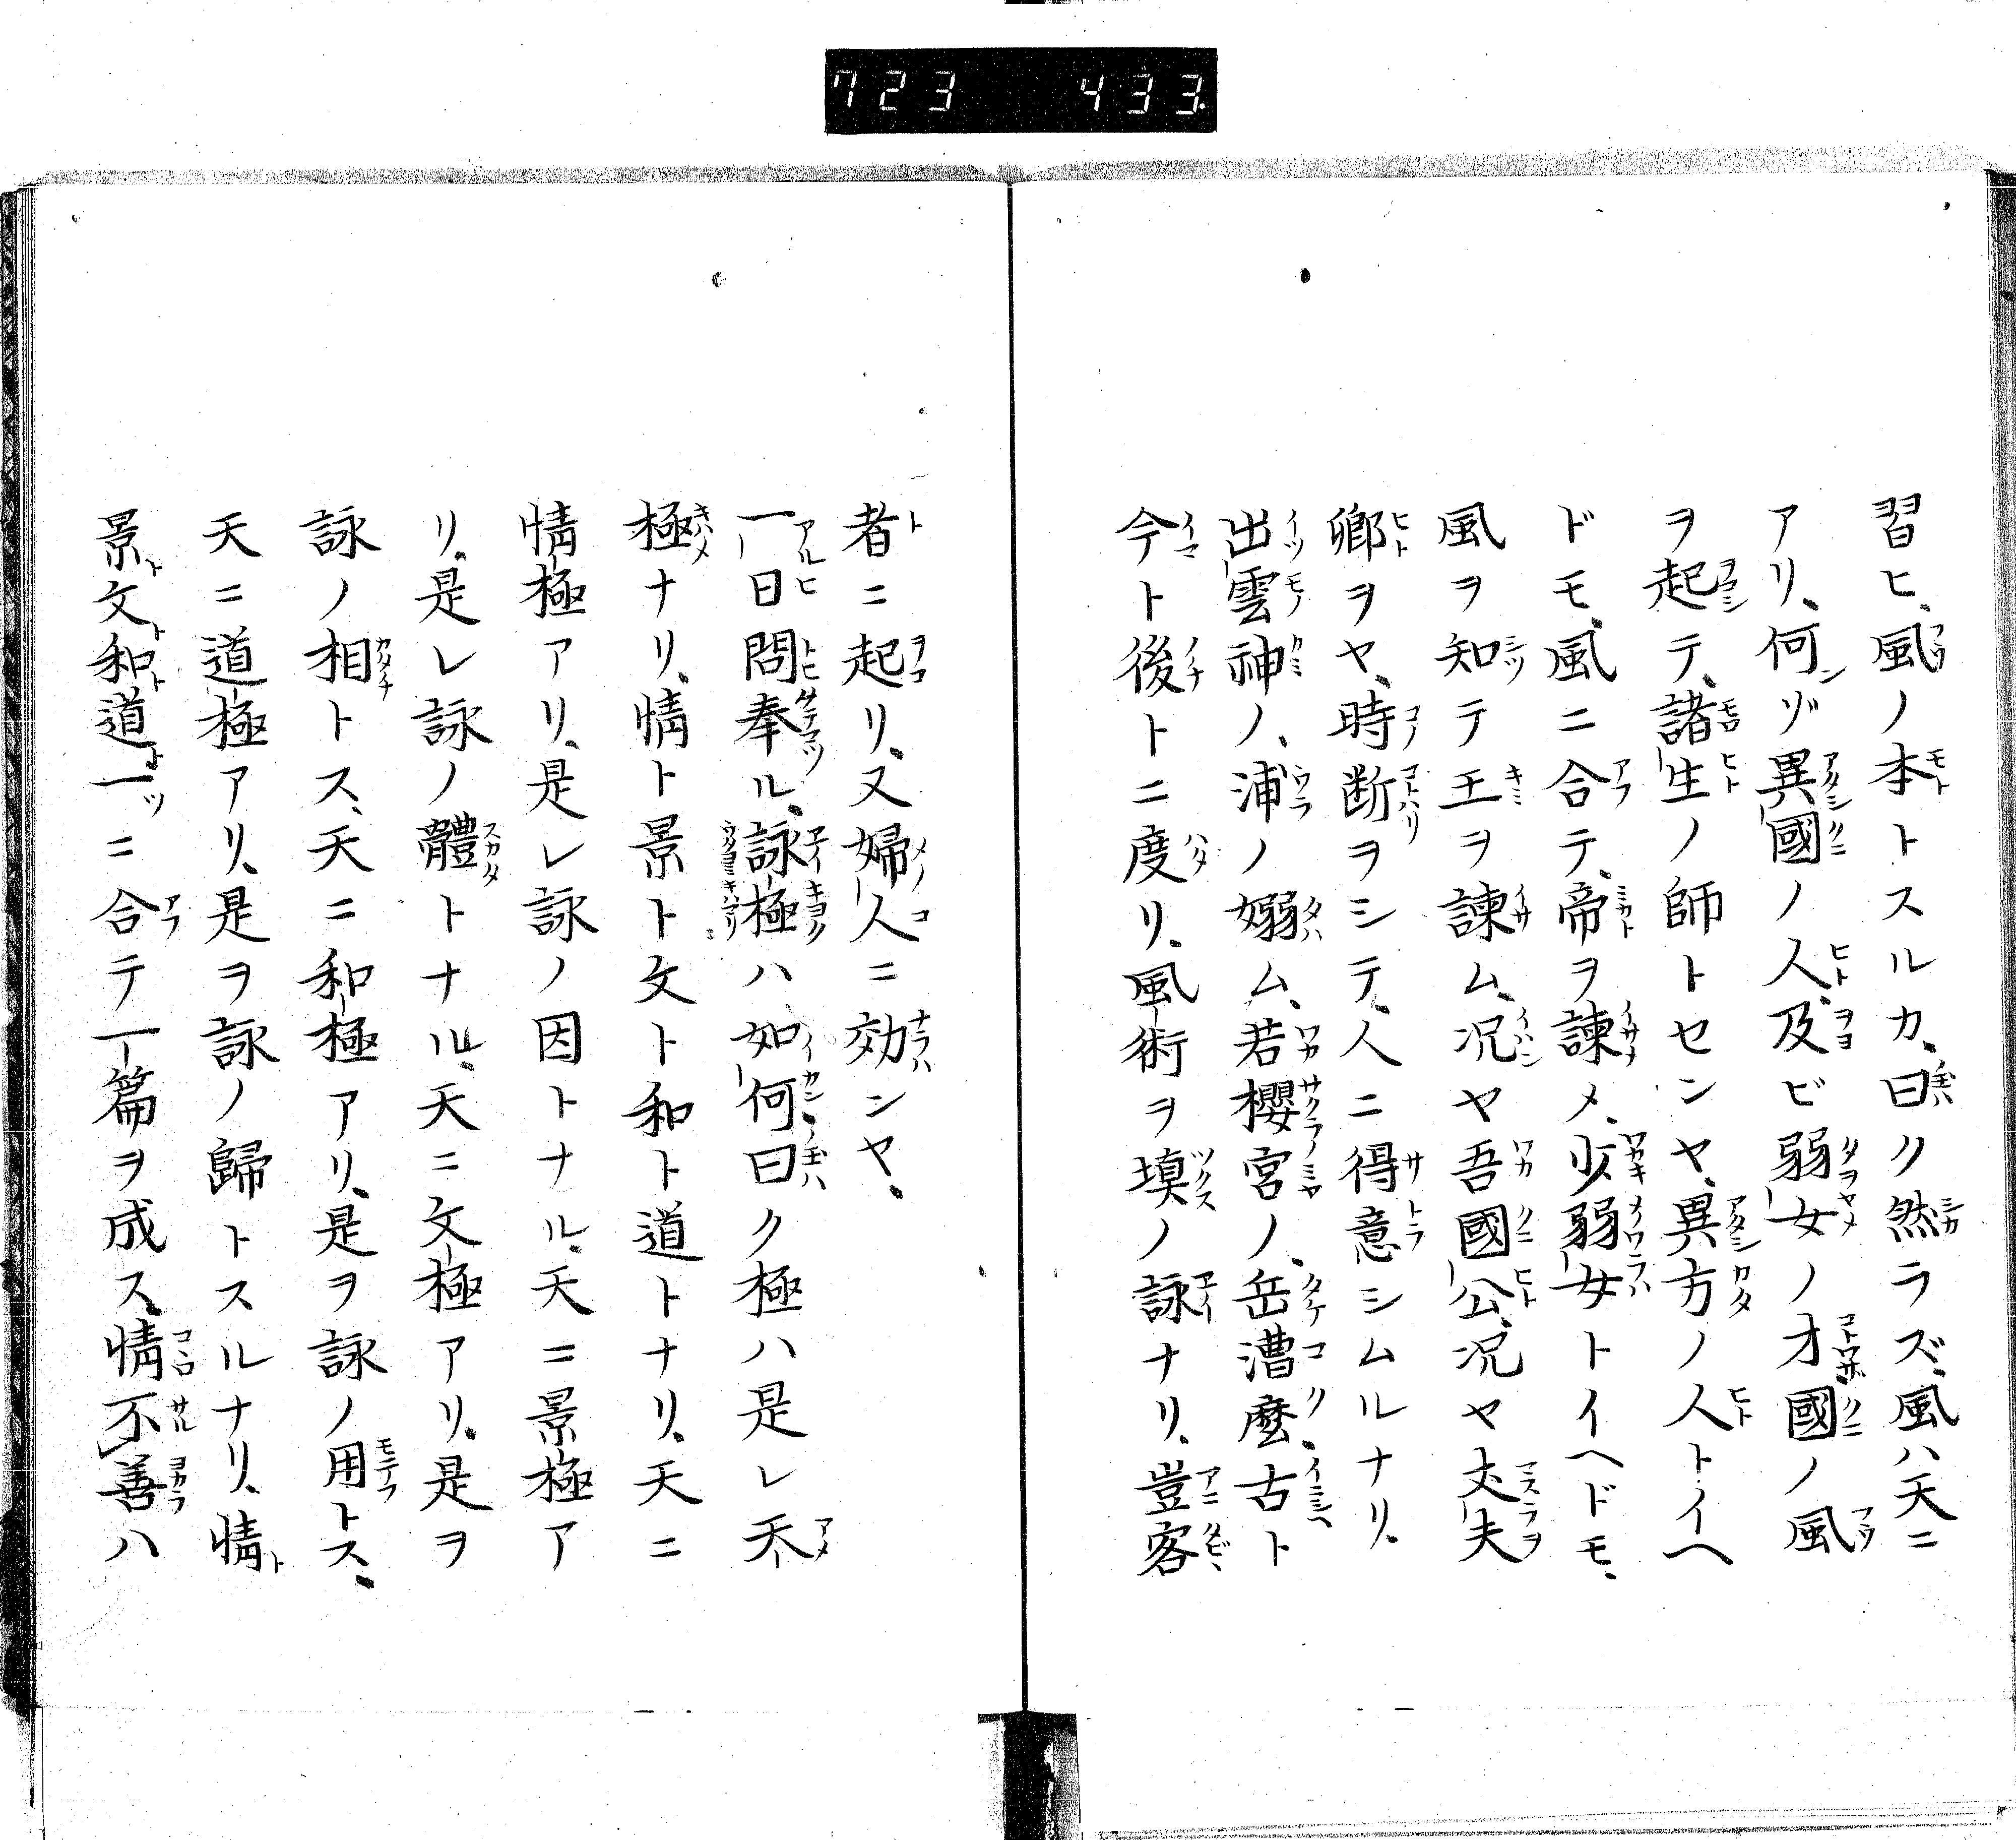 723 433.
習ヒ、風ノ本トスルカ、曰ク然ラズ、風ハ天ニ
アリ、何ゾ異國ノ人、及ビ弱女ノ才、國ノ風
ヲ起テ、諸生ノ師トセンヤ、異方ノ人トイヘ
ドモ、風ニ合テ、帝ヲ諫メ、少弱女トイヘドモ、
風ヲ知テ王ヲ諫ム、况ヤ吾國公、况ヤ丈夫
郷ヲヤ、時断ヲシテ、人ニ得意シムルナリ、
出雲神ノ、浦ノ嫋ム、若櫻宮ノ、岳漕麼、古ト
今ト後トニ度リ、風術ヲ填ノ詠ナリ、豈客
者ニ起リ、又婦人ニ効ンヤ、
一日問奉ル、詠極ハ如何、曰ク極ハ是レ天
極ナリ、情ト景ト文ト和ト道トナリ、天ニ
情極アリ、是レ詠ノ因トナル、天ニ景極ア
リ、是レ詠ノ體トナル、天ニ文極アリ、是ヲ
詠ノ相トス、天ニ和極アリ、是ヲ詠ノ用トス、
天ニ道極アリ、是ヲ詠ノ歸トスルナリ、情
景文和道一ニ合テ一篇ヲ成ス、情不善ハ